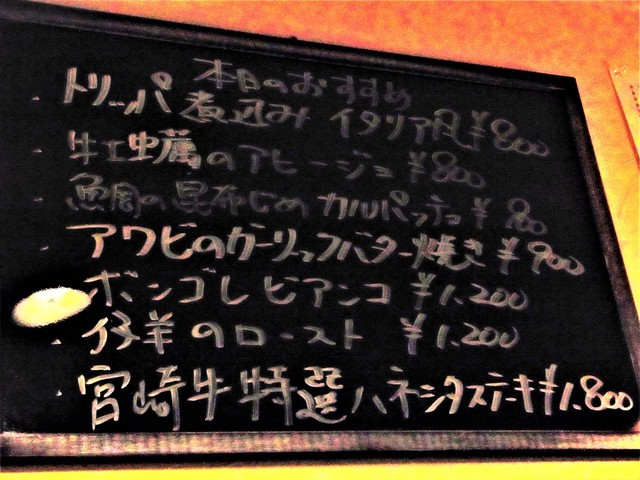 本日のおすすめ
トリッパ煮込み イタリア風 ¥800
牡蠣のアヒージョ ¥800
鯛の昆布じめ カルパッチョ ¥800
アワビのガーリックバター焼き ¥900
ボンゴレビアンコ ¥1.200
仔羊のロースト ¥1.200
宮崎牛特選ハネシタステーキ ¥1.800